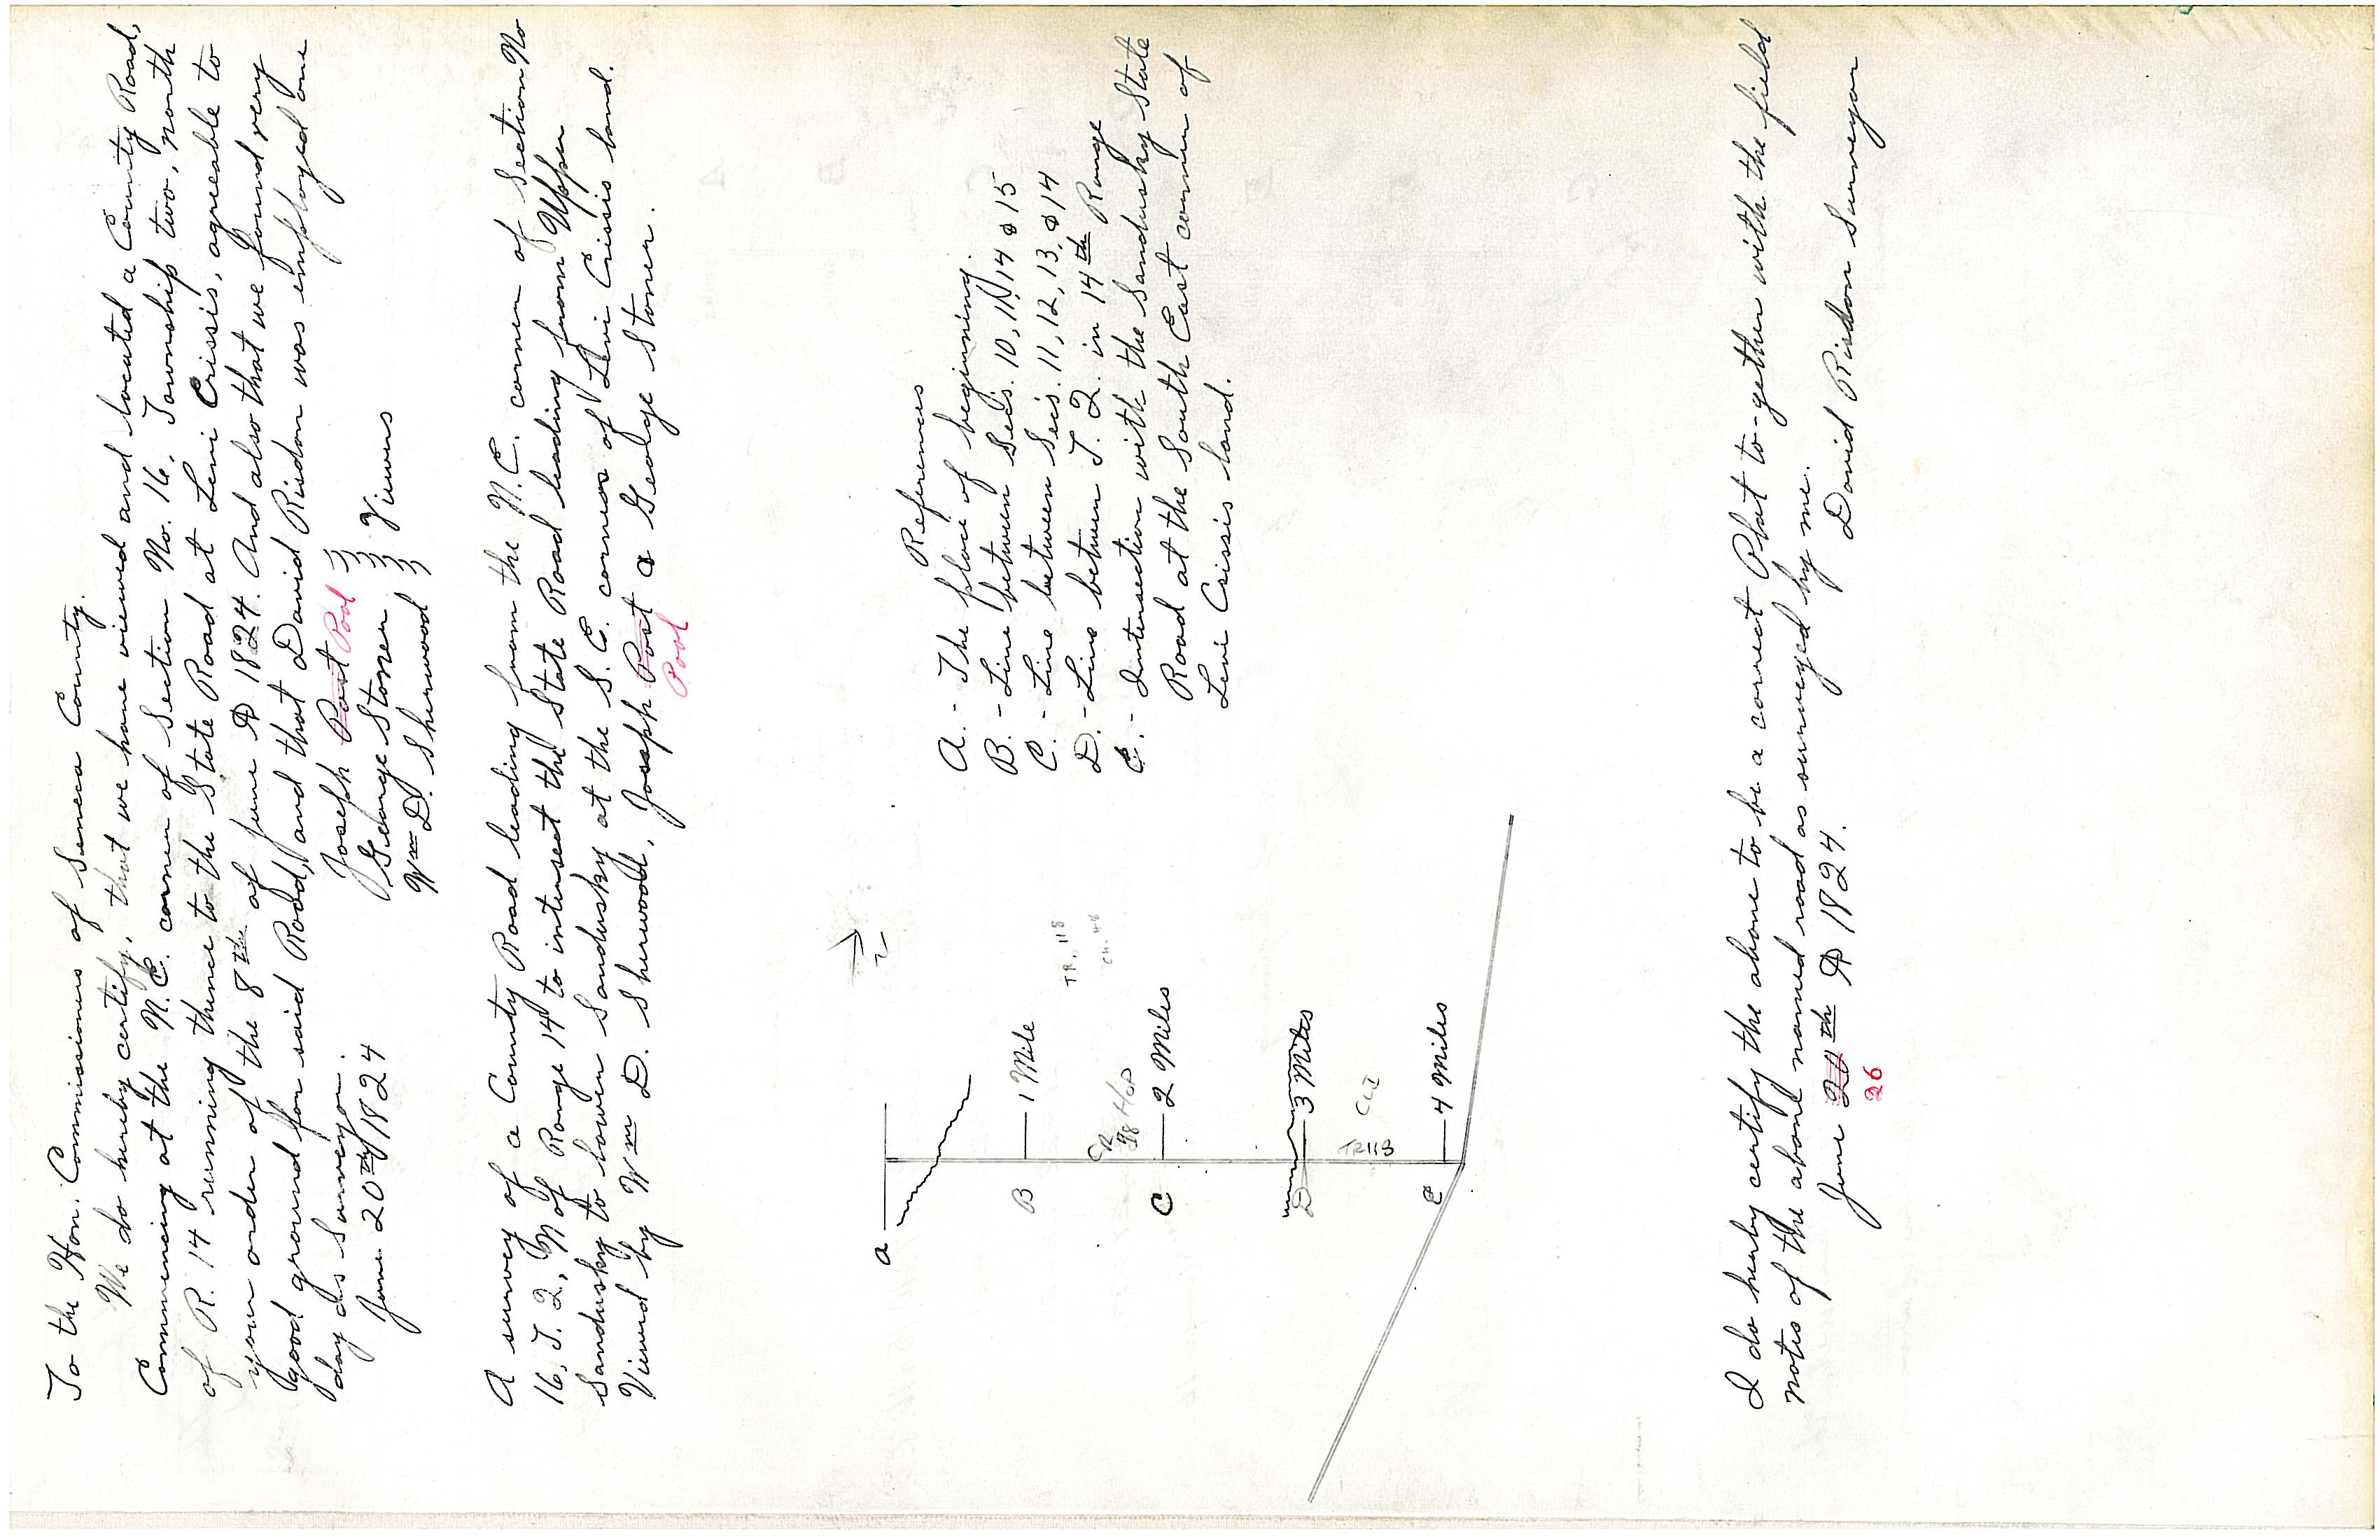 To the Hon. Commissioners of Seneca County.
We do hereby certify, that we have viewed and located a County Road,
Commencing at the N.E. corner of Section No. 16, Township two, north
of R. 14 running thence to the State Road at Levi Crissis, agreeable to
your order of the 8th of June AD 1824. And also that we found very
good ground for said Road, and that David Risdon was employed one
day as surveyor.
June 20th 1824
Joseph Post Pool
George Stoner
Wm D. Sherwood
Viewers
A survey of a County Road leading from the N.E. corner of Section No
16, T. 2, N of Range 14 to intersect the State Road leading from Upper
Sandusky to lower Sandusky at the S.E. corner of Levi Crissis land.
Viewed by Wm D. Sherwood, Joseph Post & George Stoner.
Pool
References
A. - The place of beginning.
B. - Line between Secs. 10, 11, 14 & 15
C. - Line between Secs. 11, 12, 13, & 14
D. - Line between T. 2. in 14th Range
E. - Intersection with the Sandusky State
Road at the South East corner of
Levi Crissis land.
TR. 118
CH. 48
A
B
1 Mile
CR
98 Hop
C
2 Miles
D
3 Miles
TR118
Cli
E
4 Miles
I do hereby certify the above to be a correct Plat to-gether with the field
notes of the above named road as surveyed by me.
June 20th AD 1824.
26
David Risdon Surveyor